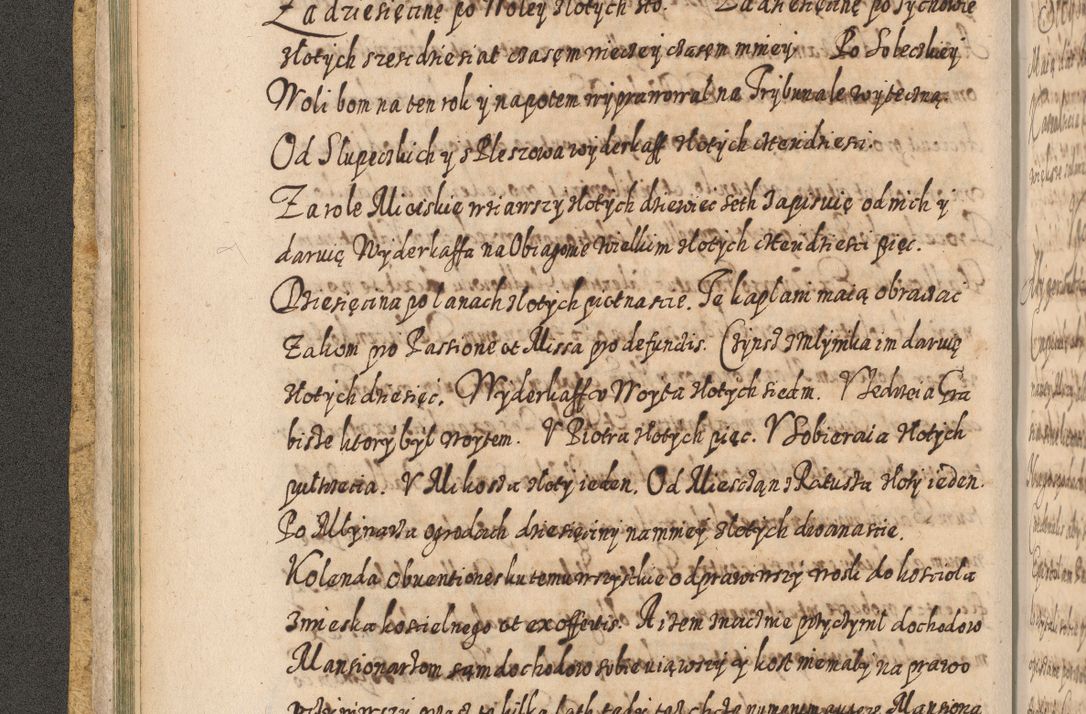 Za dziesięcinę po Woley złotych sto. Za dziesięcinę po Tychowie
złotych sześcdziesiat czasem więcey czasem mniey. Po Sobeckiey
Woli bom na ten rok y napotem wyprawował na Trybunale wyteczną.
Od Slupeckich y s Pleszowa wyderkaff złotych czterdziesci.
Za role Miciskie wziawszy złotych dziewięc seth zapisuię od nich y
daruię Wyderkaffa na Obiazone wielkim złotych czterdziesci pięc.
Dziesięcina po Lanach złotych piętnascie. Te kaplani maią obracac
Zakom po Passione et Missa pro defunctis. Czynsz z Młynika im daruię
złotych dziesięc. Wyderkaff v Woyta złotych siedm. V Jedrzeia Gra
bisze ktory był woytem. V Piotra złotych pięc. V Sobieraia złotych
pułtrzecia. V Mikosza złoty ieden. Od Mieszczan z Ratusza złoty ieden.
Po Młynarza ogrodach dziesięciny namniey złotych dwanascie.
Kolenda obuentiones ku temu wszystkie odprawiwszy wosk do kosciola
zmieska koscielnego et ex offertis. A item znacznie przyczynil dochodow
Mansionarzom sam dochodow sobie uiąwszy y koszt niemały na prawo